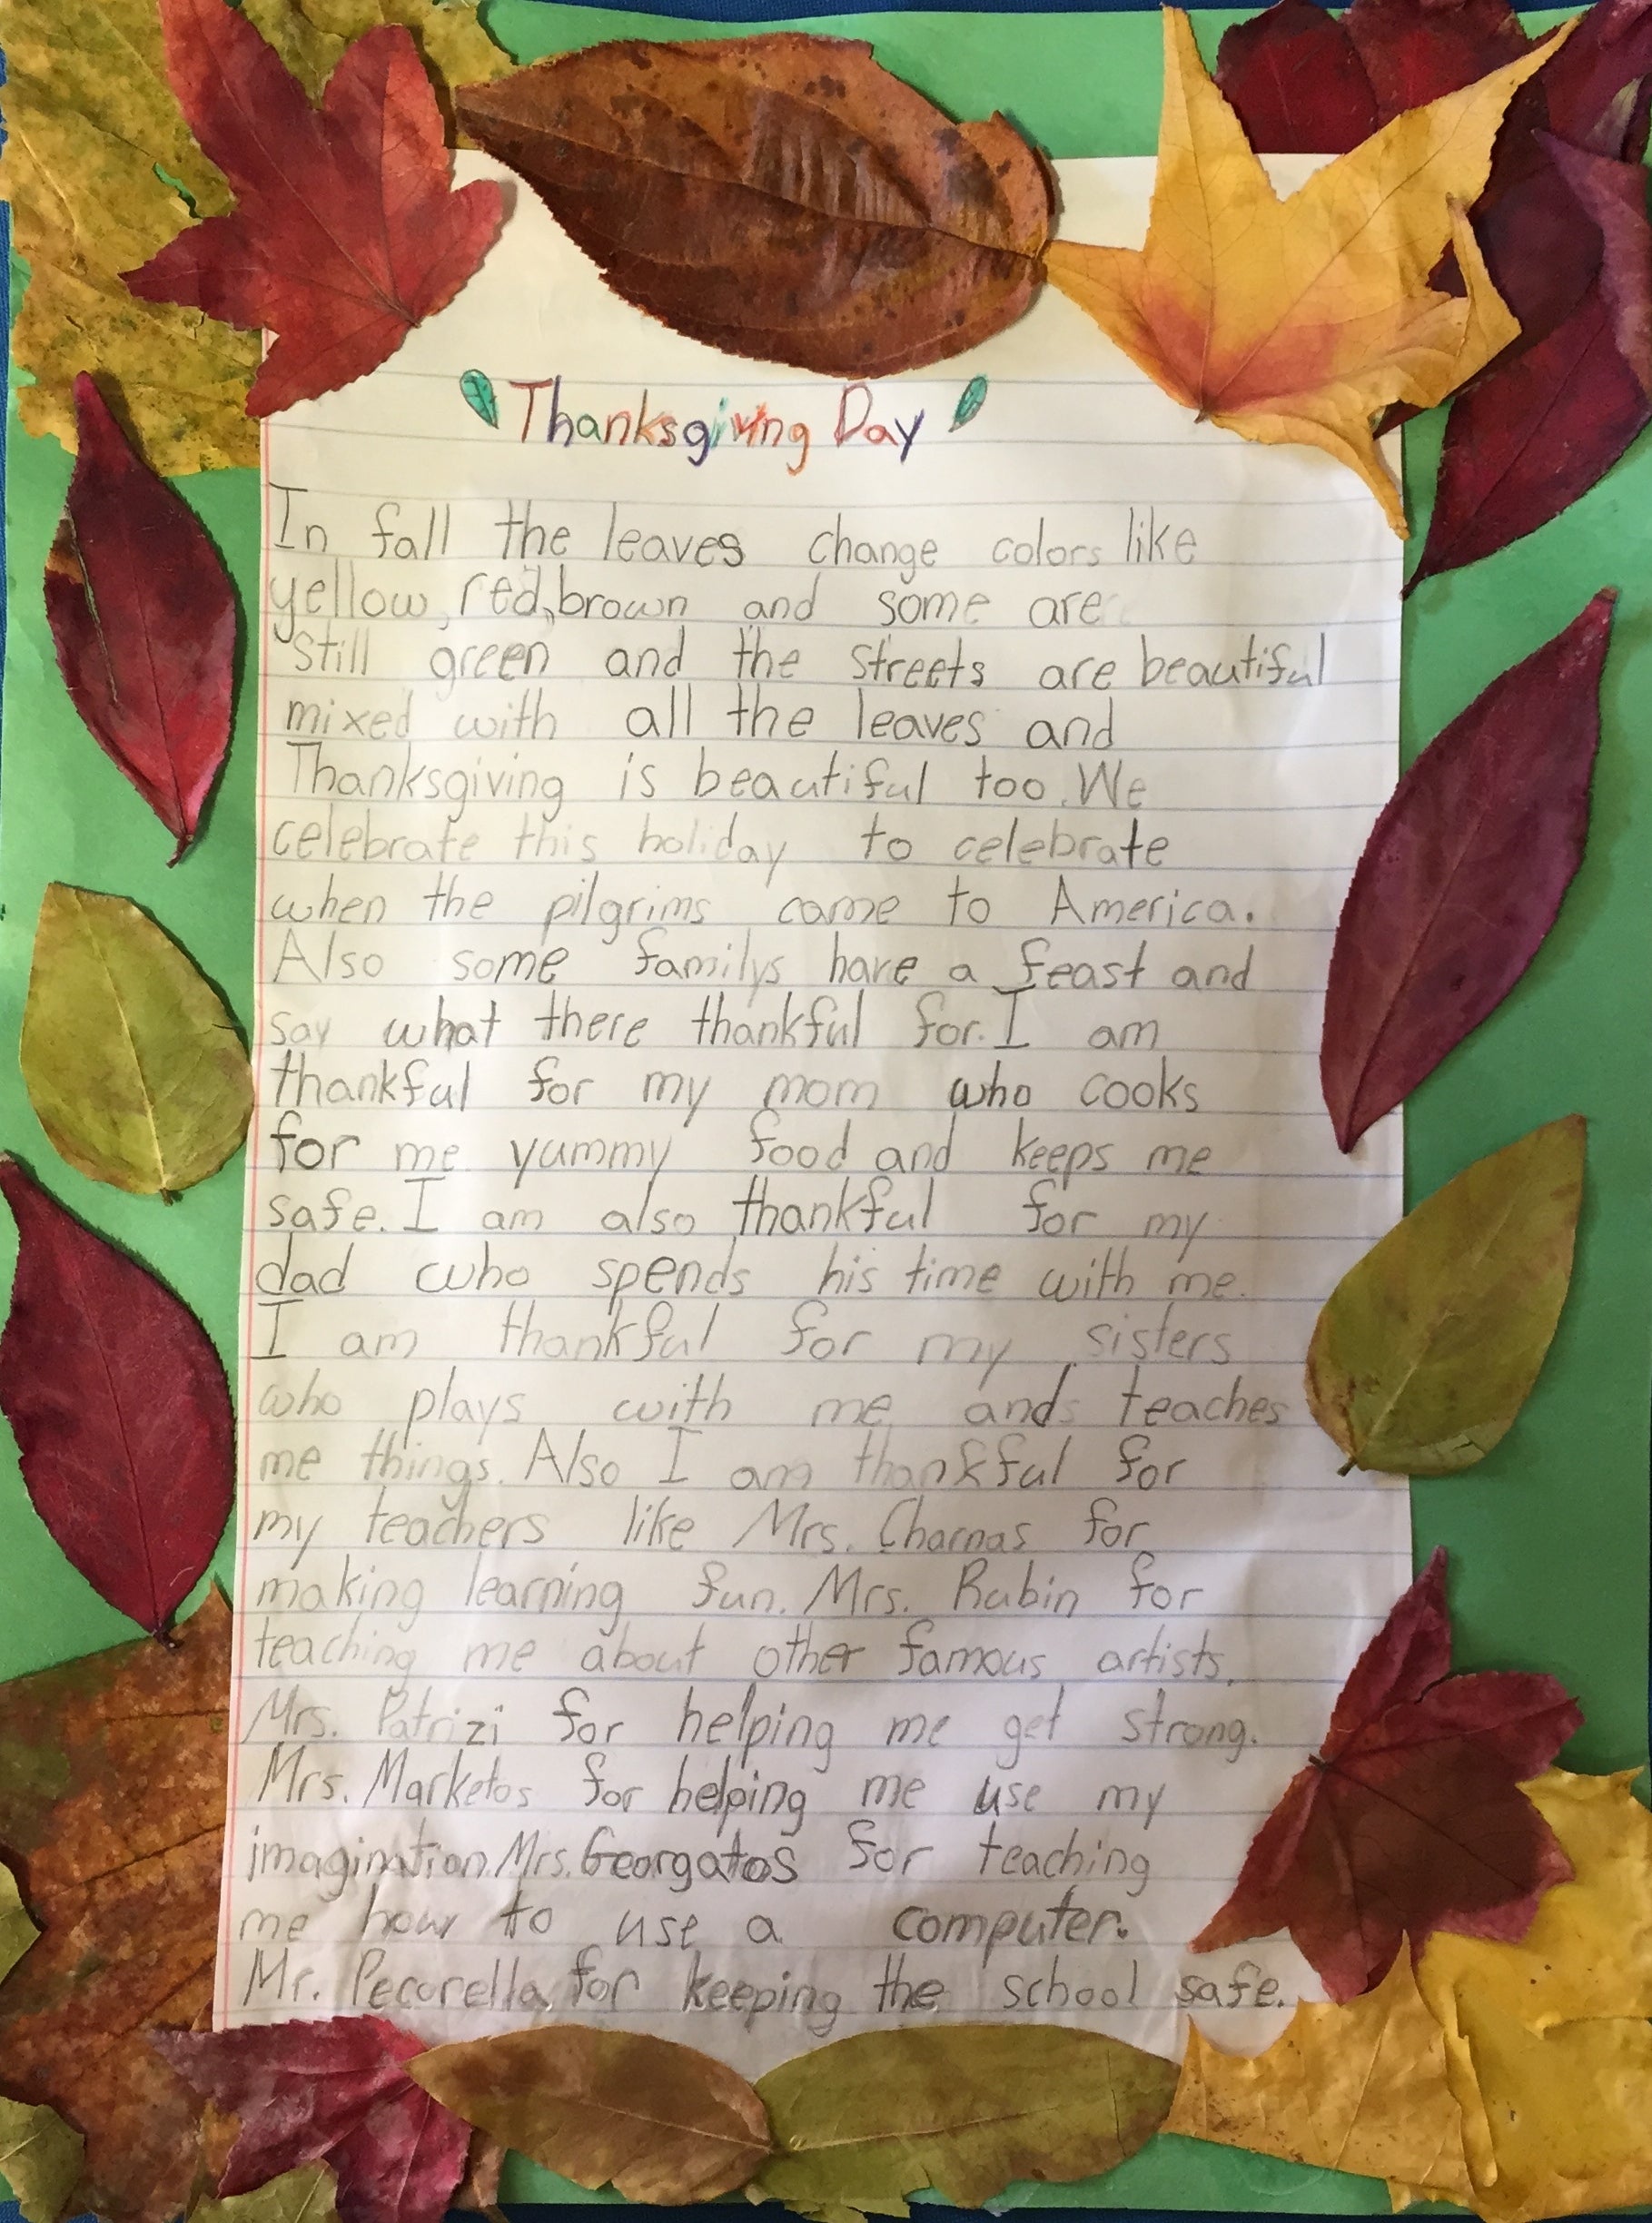 Thanksgiving Day
In fall the leaves change colors like
yellow, red, brown and some are
still green and the streets are beautiful
mixed with all the leaves and
Thanksgiving is beautiful too. We
celebrate this holiday to celebrate
when the pilgrims came to America.
Also some familys have a feast and
say what there thankful for. I am
thankful for my mom who cooks
for me yummy food and keeps me
safe. I am also thankful for my
dad who spends his time with me.
I am thankful for my sisters
who plays with me and teaches
me things. Also I am thankful for
my teachers like Mrs. Charnas for
making learning fun. Mrs. Rubin for
teaching me about other famous artists.
Mrs. Patrizi for helping me get strong.
Mrs. Marketos for helping me use my
imagination. Mrs. Georgatos for teaching
me how to use a computer.
Mr. Pecorella for keeping the school safe.